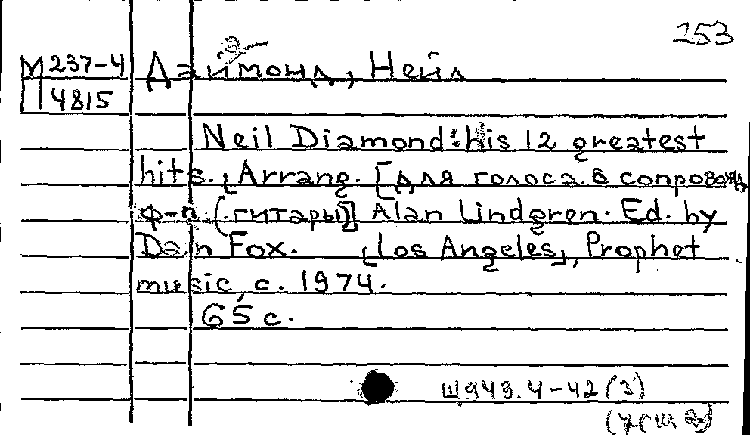 253
М 237-4 Даймонд, Нейл
П 4815
Neil Diamond: his 12 greatest
hits. [Arrang. [для голоса в сопровожд
ф-п. (гитары)] Alan Lindgren. Ed. by
Dan Fox. [Los Angeles], Prophet
music, c. 1974.
65 c.
Щ943.4-42(3)